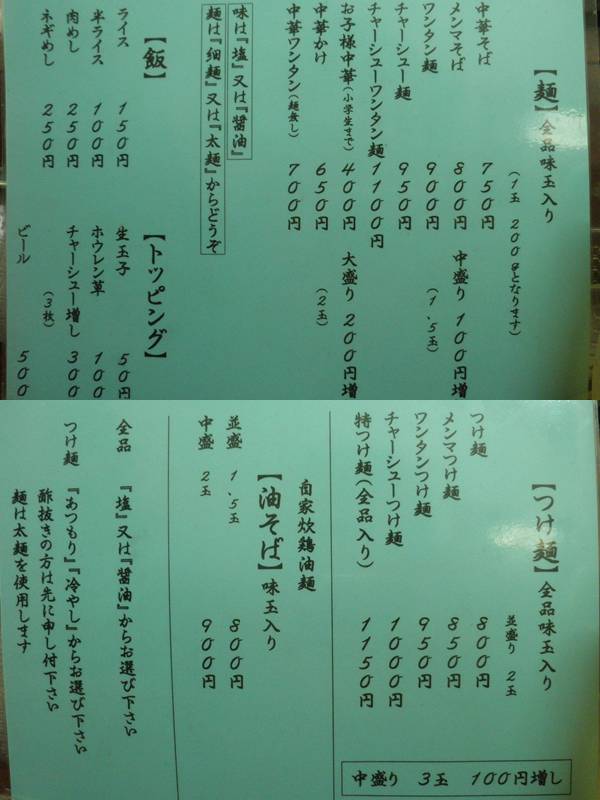 【麺】全品味玉入り
(1玉 200gとなります)
中華そば 750円
メンマそば 800円 中盛り 100円増
ワンタン麺 900円 (1、5玉)
チャーシュー麺 950円
チャーシューワンタン麺 1100円
お子様中華(小学生まで) 400円 大盛り 200円増
中華かけ 650円 (2玉)
中華ワンタン(麺無し) 700円
味は『塩』又は『醤油』
麺は『細麺』又は『太麺』からどうぞ
【飯】
ライス 150円
半ライス 100円
肉めし 250円
ネギめし 250円
【トッピング】
生玉子 50円
ホウレン草 100
チャーシュー増し 300
(3枚)
ビール 500
【つけ麺】全品味玉入り
並盛り 2玉
つけ麺 800円
メンマつけ麺 850円
ワンタンつけ麺 950円
チャーシューつけ麺 1000円
特つけ麺(全品入り) 1150円
中盛り 3玉 100円増し
自家炊鶏油麺
【油そば】味玉入り
並盛 1、5玉 800円
中盛 2玉 900円
全品 『塩』又は『醤油』からお選び下さい
つけ麺 『あつもり』『冷やし』からお選び下さい
酢抜きの方は先に申し付下さい
麺は太麺を使用します